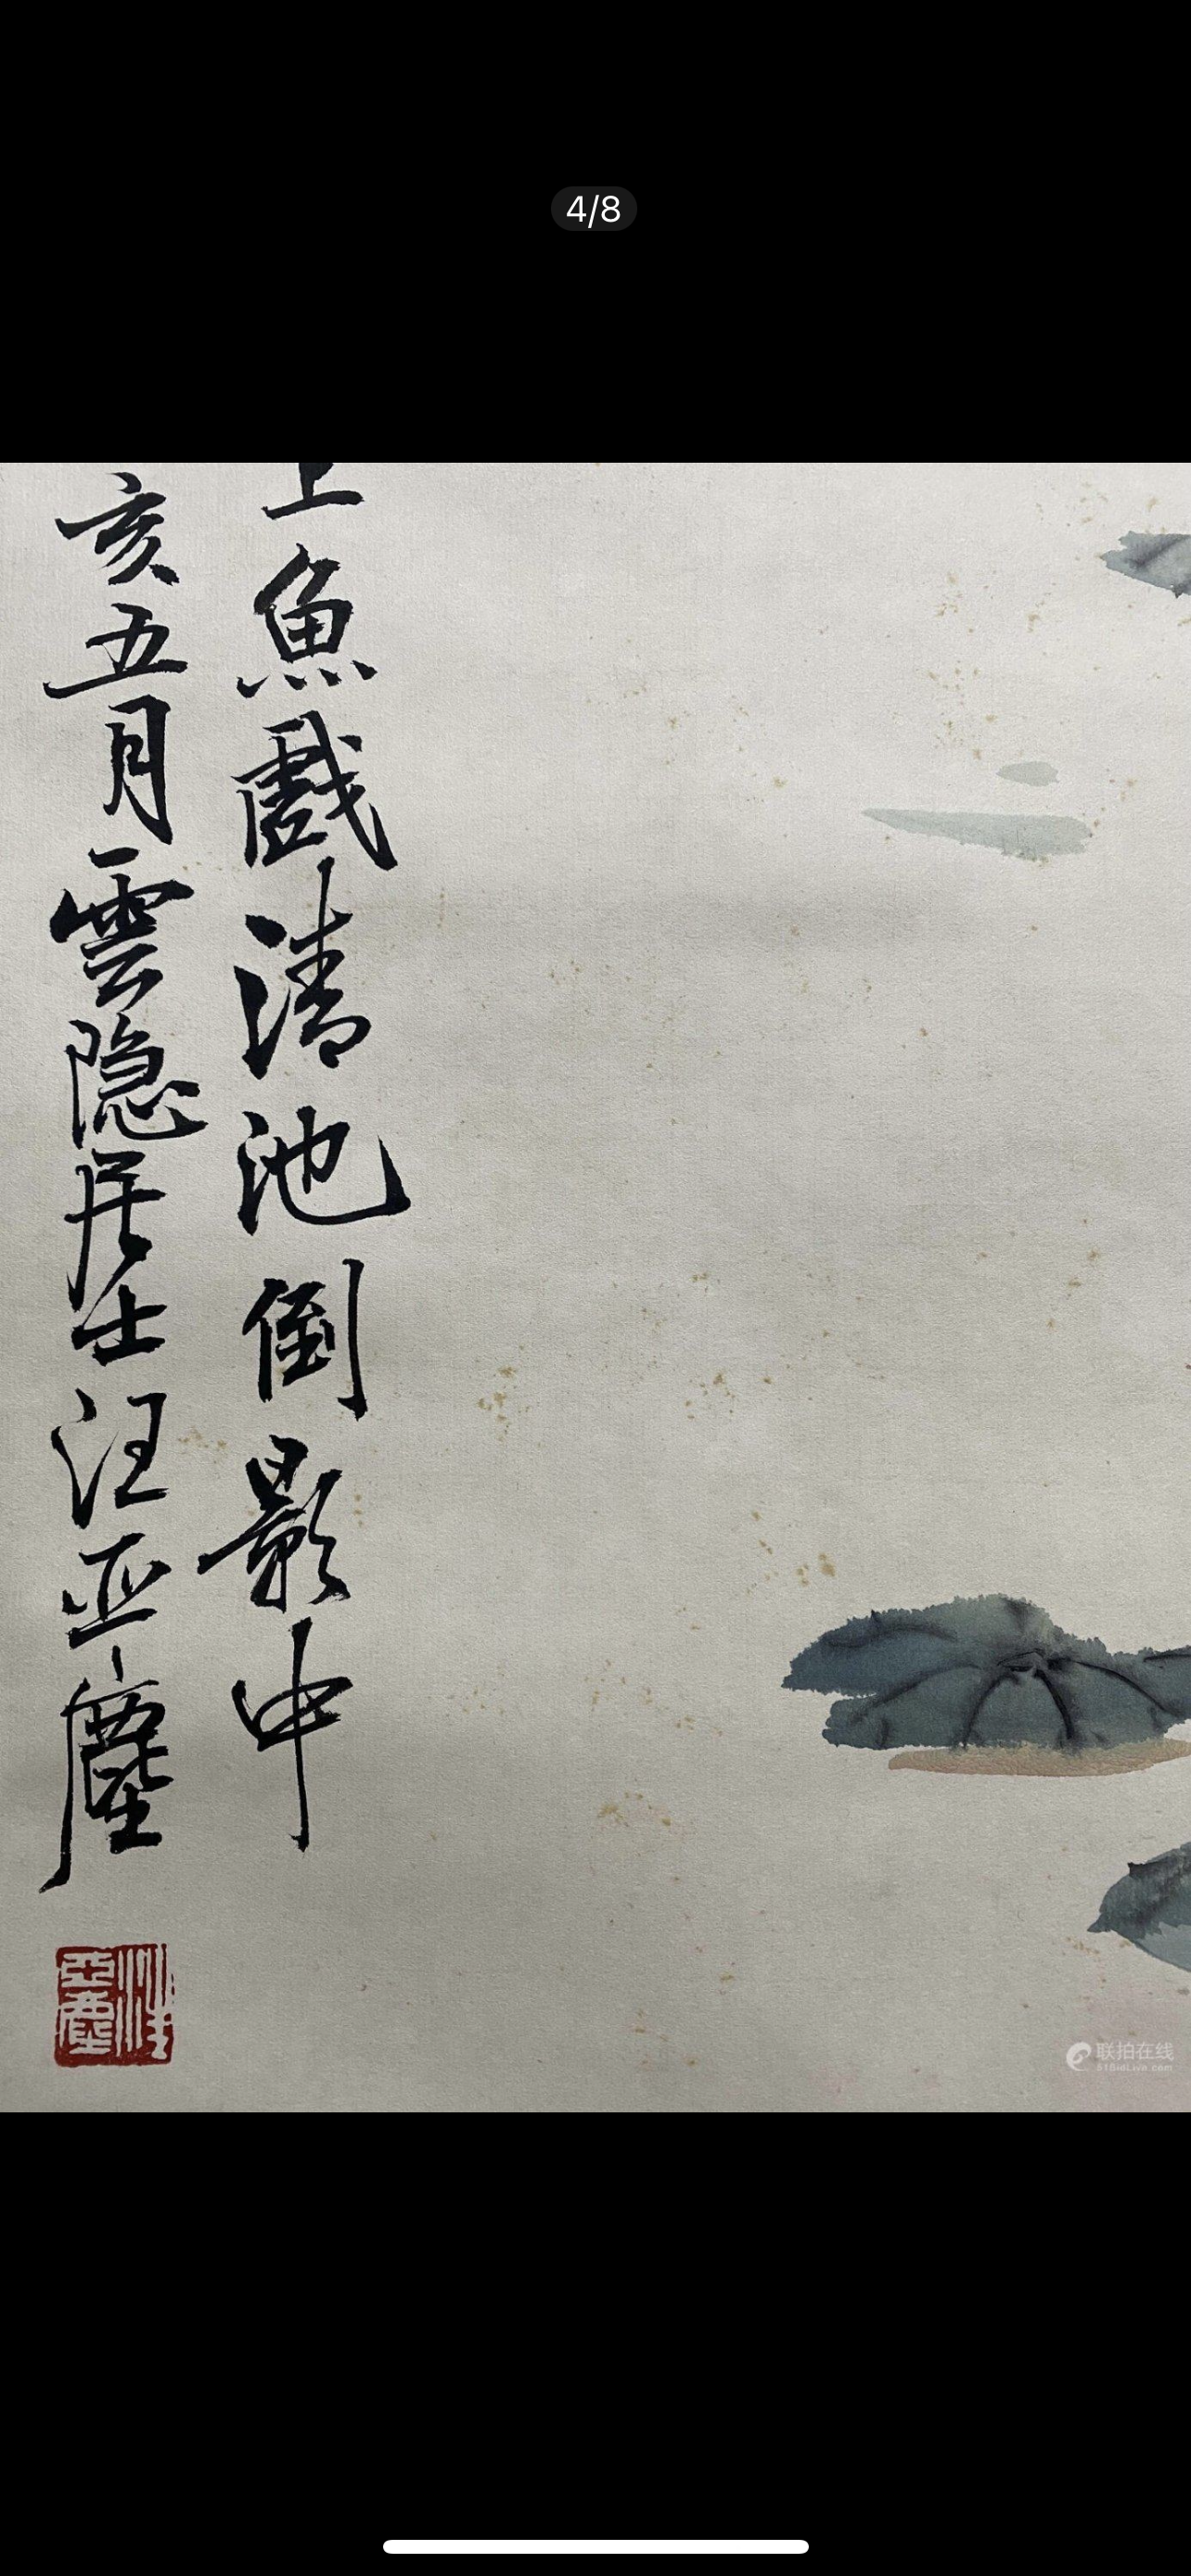 4/8
上魚戲清池倒影中
亥五月雲隐居士汪亚塵
汪亞塵
联拍在线
518idLive.com